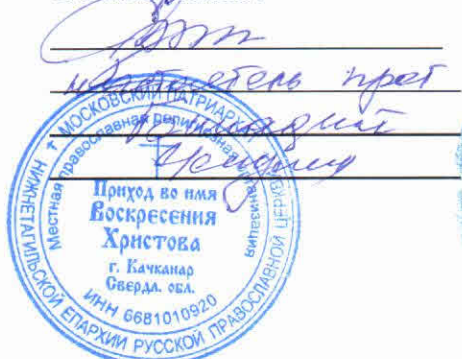 настоятель прот
Геннадий
МОСКОВСКИЙ ПАТРИАРХАТ
НИЖНЕТАГИЛЬСКОЙ ЕПАРХИИ РУССКОЙ ПРАВОСЛАВНОЙ ЦЕРКВИ
Местная православная религиозная организация
Приход во имя
Воскресения
Христова
г. Качканар
Свердл. обл.
ИНН 6681010920